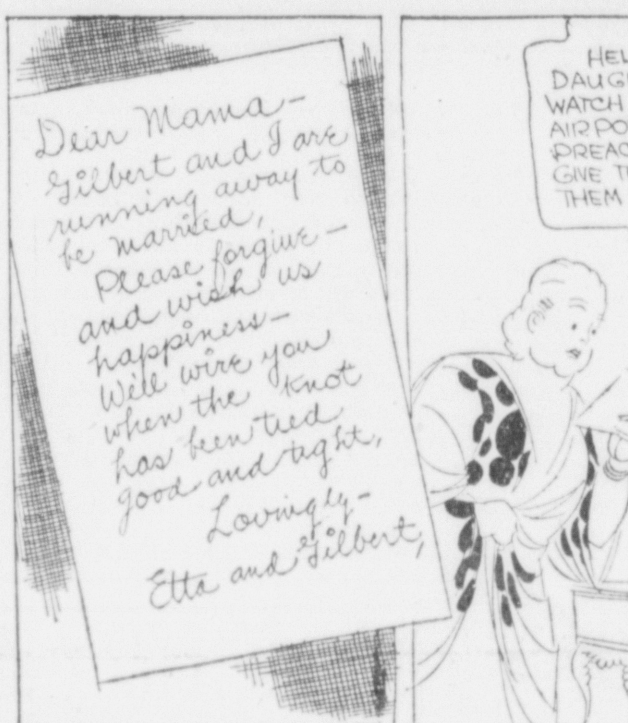 Dear Mama—
Gilbert and I are
running away to
be married,
Please forgive—
and wish us
happiness—
We'll wire you
when the knot
has been tied
good and tight,
Lovingly—
Etta and Gilbert,
WATCH
THEM